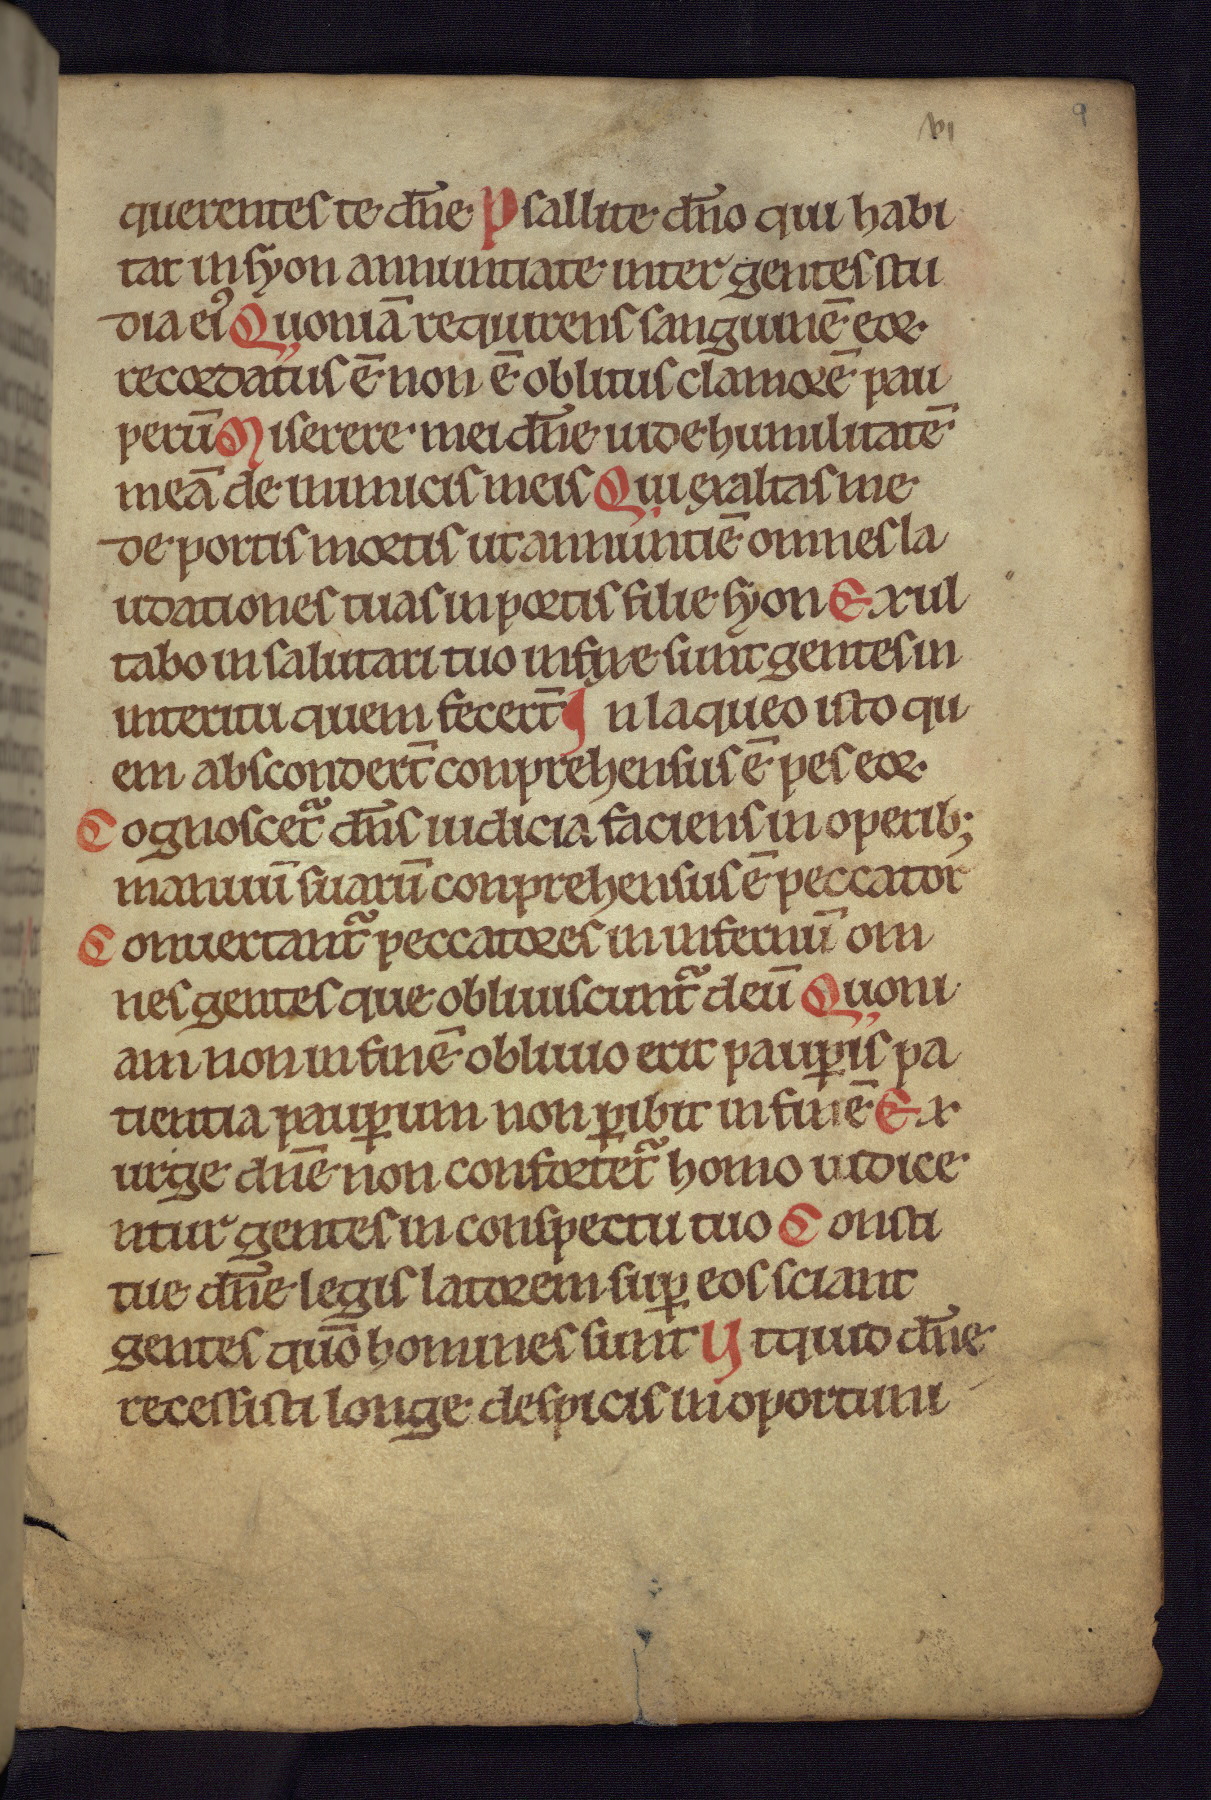 vi 9
querentes te dn̄e Psallite dn̄o qui habi
tat in syon annuntiate inter gentes stu
dia ei᾿ Quoniā requirens sanguinē eoꝝ
recordatus ē non ē oblitus clamorē pau
perū Miserere mei dn̄e uide humilitatē
meā de inimicis meis Qui exaltas me
de portis mortis ut annuntiē omnes la
udationes tuas in portis filie syon Exul
tabo in salutari tuo infixe sunt gentes in
interitu quem fecert̄ In laqueo isto qu
em abscondert̄ conprehensus ē pes eoꝝ
Cognoscet᷑ dn̄s iudicia faciens in operib;
manuū suarū conprehensus ē peccator
Conuertant᷑ peccatores in infernū om
nes gentes que obliuiscunt᷑ deū Quoni
am non in finē obliuio erit pauꝑis pa
tientia pauꝑum non ꝑibit in finē Ex
urge dn̄e non confortet᷑ homo iudice
ntur gentes in conspectu tuo Consti
tue dn̄e legis latorem suꝑ eos sciant
gentes qūo homines sunt Ut quid dn̄e
recessisti longe despicis in oportuni